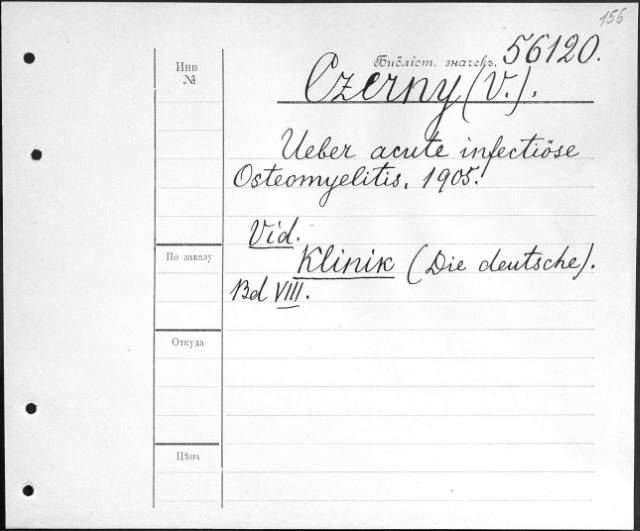 156
Библіот. значекъ. 56120.
Инв
№
Czerny (V.).
Ueber acute infectiöse
Osteomyelitis. 1905.
Vid.
Klinik (Die deutsche).
По заказу
Bd VIII.
Откуда
Цѣна